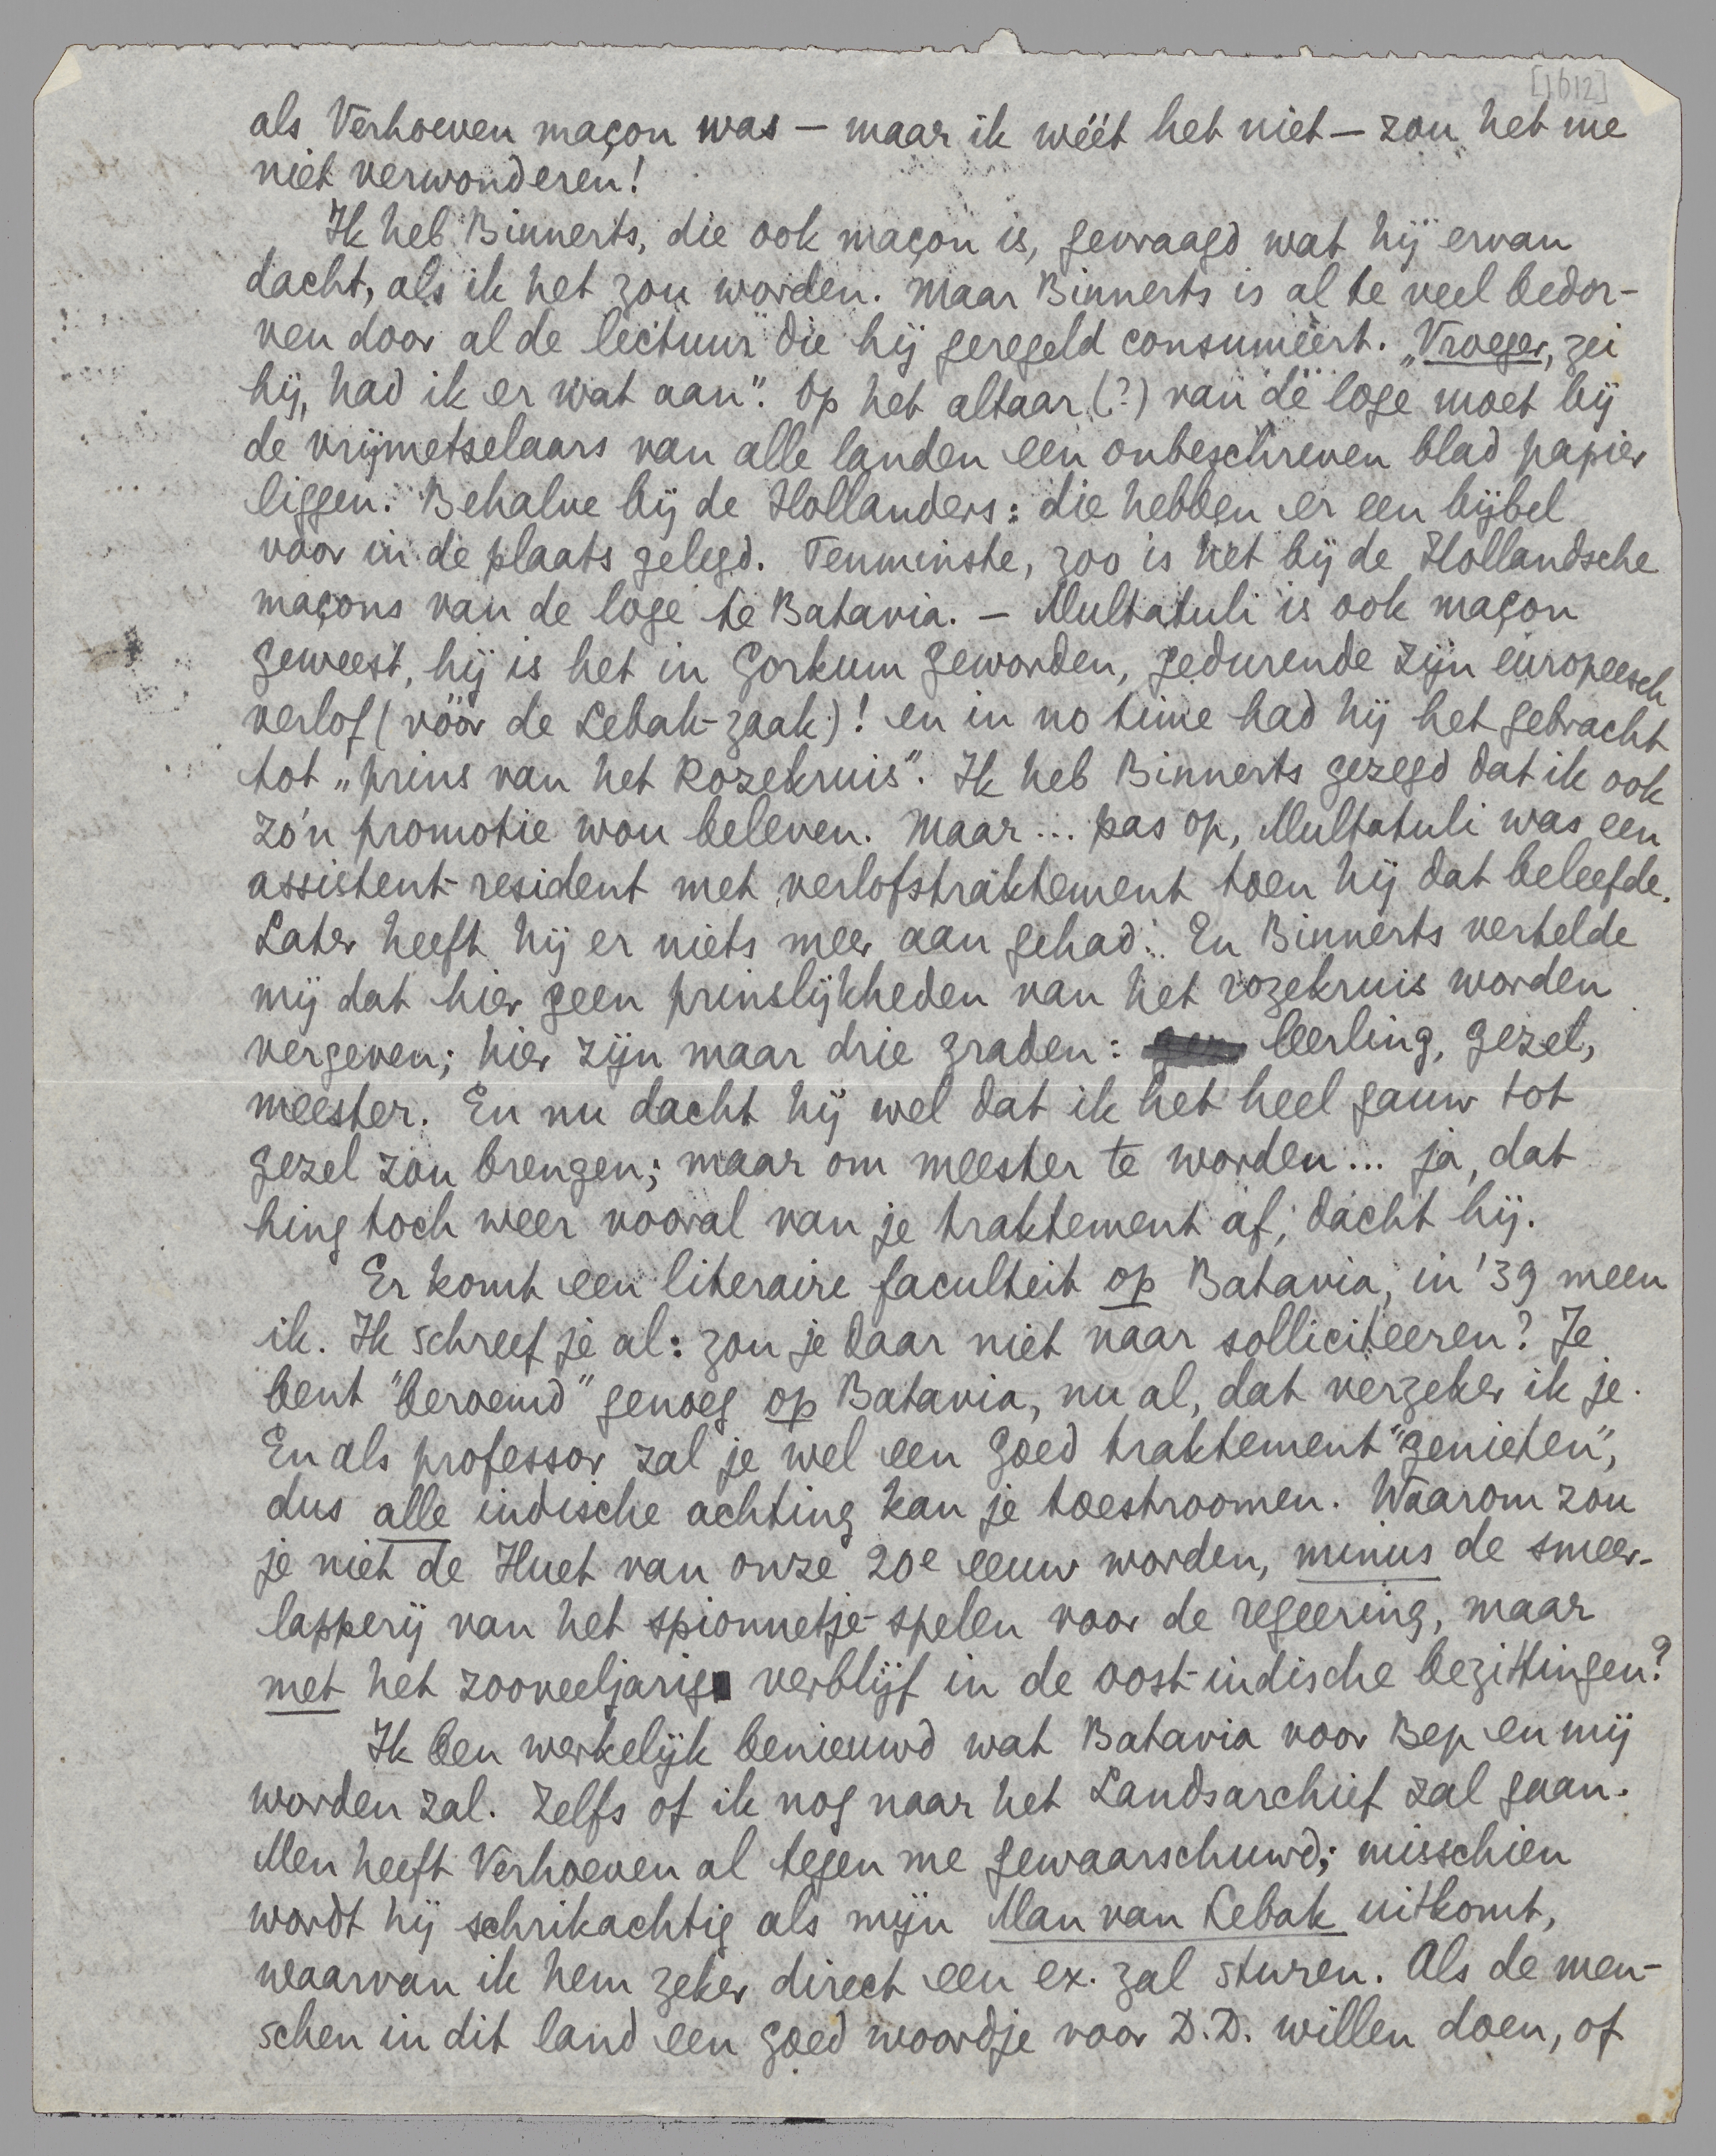 [1612]
als Verhoeven maçon was – maar ik wéét het niet – zou het me
niet verwonderen!
Ik heb Binnerts, die ook maçon is, gevraagd wat hij ervan
dacht, als ik het zou worden. Maar Binnerts is al te veel bedor-
ven door al de lectuur die hij geregeld consumeert. „Vroeger, zei
hij, had ik er wat aan”. Op het altaar (?) van de loge moet bij
de vrijmetselaars van alle landen een onbeschreven blad papier
liggen. Behalve bij de Hollanders: die hebben er een bijbel
voor in de plaats gelegd. Tenminste, zoo is het bij de Hollandsche
maçons van de loge te Batavia. – Multatuli is ook maçon
geweest, hij is het in Gorkum geworden, gedurende zijn europeesch
verlof (vóór de Lebak-zaak)! en in no time had hij het gebracht
tot „prins van het Rozekruis”. Ik heb Binnerts gezegd dat ik ook
zo'n promotie wou beleven. Maar... pas op, Multatuli was een
assistent-resident met verlofstraktement toen hij dat beleefde.
Later heeft hij er niets meer aan gehad. En Binnerts vertelde
mij dat hier geen prinslijkheden van het rozekruis worden
vergeven; hier zijn maar drie graden: leerling, gezel,
meester. En nu dacht hij wel dat ik het heel gauw tot
gezel zou brengen; maar om meester te worden... ja, dat
hing toch weer vooral van je traktement af, dacht hij.
Er komt een literaire faculteit op Batavia, in '39 meen
ik. Ik schreef je al: zou je daar niet naar solliciteeren? Je
bent "beroemd" genoeg op Batavia, nu al, dat verzeker ik je.
En als professor zal je wel een goed traktement "genieten",
dus alle indische achting kan je toestroomen. Waarom zou
je niet de Huet van onze 20e eeuw worden, minus de smeer-
lapperij van het spionnetje-spelen voor de regeering, maar
met het zooveeljarig verblijf in de oost-indische bezittingen?
Ik ben werkelijk benieuwd wat Batavia voor Bep en mij
worden zal. Zelfs of ik nog naar het Landsarchief zal gaan.
Men heeft Verhoeven al tegen me gewaarschuwd; misschien
wordt hij schrikachtig als mijn Man van Lebak uitkomt,
waarvan ik hem zeker direct een ex. zal sturen. Als de men-
schen in dit land een goed woordje voor D.D. willen doen, of